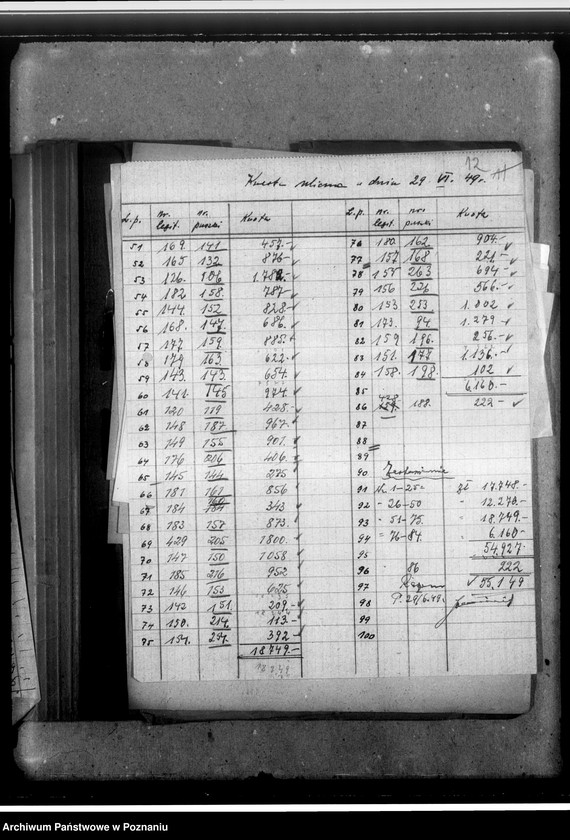 12
Kwesta uliczna w dniu 29. VI. 49r.
L.p. nr. legit. nr. puszki Kwota
51 169 141 457.-
52 165 132 876-
53 126. 106
54 182 158. 787-
55 144. 152 828.-
56 168. 147 686.-
57 177 159 885.-
58 179 163. 622.-
59 143. 143 654.-
60 141. 145 974.-
61 120 119 428.-
62 148 187 967.-
63 149 155 901.-
64 176 206 406.-
65 145 144 275
66 181 161 856
67 184 160 343
68 183 157 873.-
69 429 205 1800.-
70 147 150 1058
71 185 216 952
72 146 153 625
73 142 151. 209.-
74 150. 214. 113.-
75 154. 231. 392-
18749.-
18749
L.p. nr. legit. nr. puszki Kwota
76 180. 162 904.-
77 157 168 221.-
78 155 263 694-
79 156 226 566.-
80 153 253. 1.002
81 173. 94. 1.279-
82 159 196. 256.-
83 151. 177 1.136.-
84 158. 198. 102
6.160.-
85
86 188. 222.-
87
88
89
90 Zestawienie
91 Nr. 1-25= zł 17.748.-
92 " 26-50 " 12.270.-
93 " 51-75. " 18.749.-
94 " 76-84. " 6.160-
95 54.927
96 " 86 222
97 Razem 55.149
98 P. 29/6.49.
99
100
Archiwum Państwowe w Poznaniu